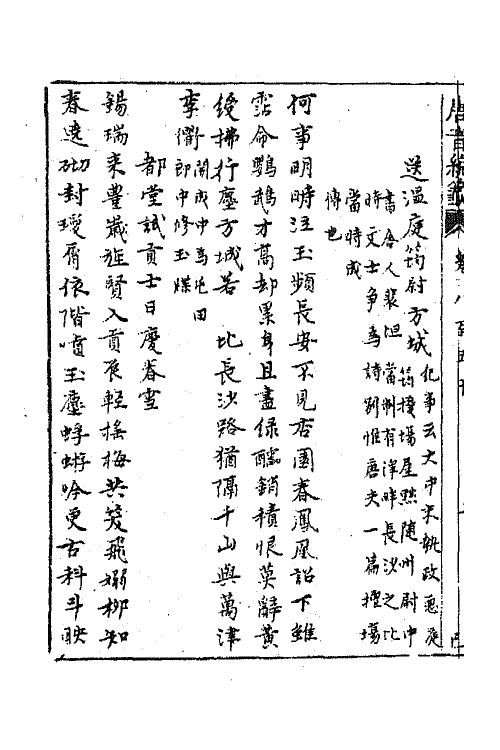 唐音統籖
送溫庭筠尉方城
紀事云大中末執政惡庭
筠攪場屋黜隨州尉中
書舍人裴坦當制有澤畔長沙之比
時文士争為詩别惟唐夫一篇擅場
當時成
傳也
何事明時泣玉頻長安不見杏園春鳳凰詔下雖
霑命鸚鵡才高却累身且盡綠醽銷積恨莫辭黄
綬拂行塵方城若比長沙路猶隔千山與萬津
李衢
開成中為屯田
郎中修玉牒
都堂試貢士日慶春雪
錫瑞来豐歲旌賢入貢辰輕搖梅共笑飛嫋柳知
春遶砌封瓊屑依階噴玉塵蜉蝣吟更古科斗映